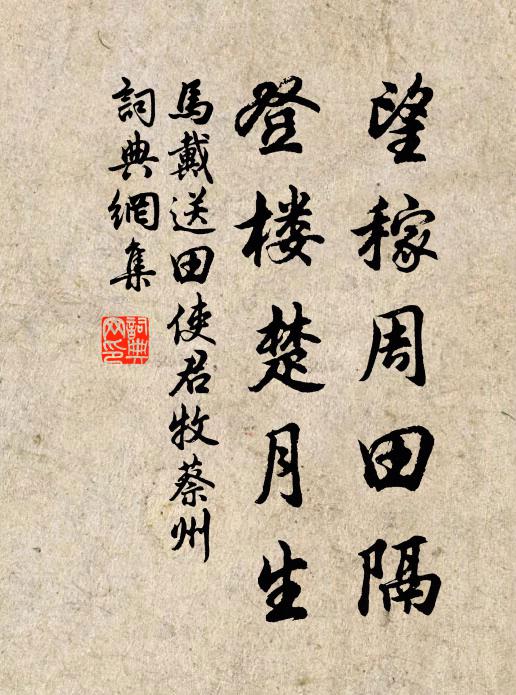 望稼周田隔
登楼楚月生
馬戴送田使君牧蔡州
詞典網集
詞典網印